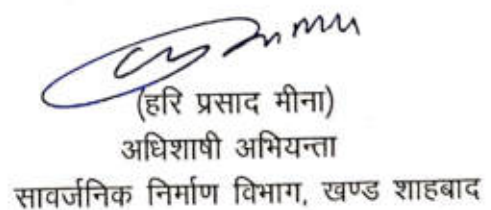 (हरि प्रसाद मीना)
अधिशाषी अभियन्ता
सावर्जनिक निर्माण विभाग, खण्ड शाहबाद